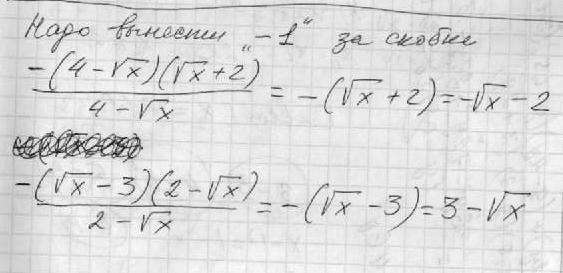 Надо вынести „-1“ за скобки
-(4-√x)(√x+2)/4-√x = -(√x+2)=-√x-2
-(√x-3)(2-√x)/2-√x = -(√x-3)=3-√x